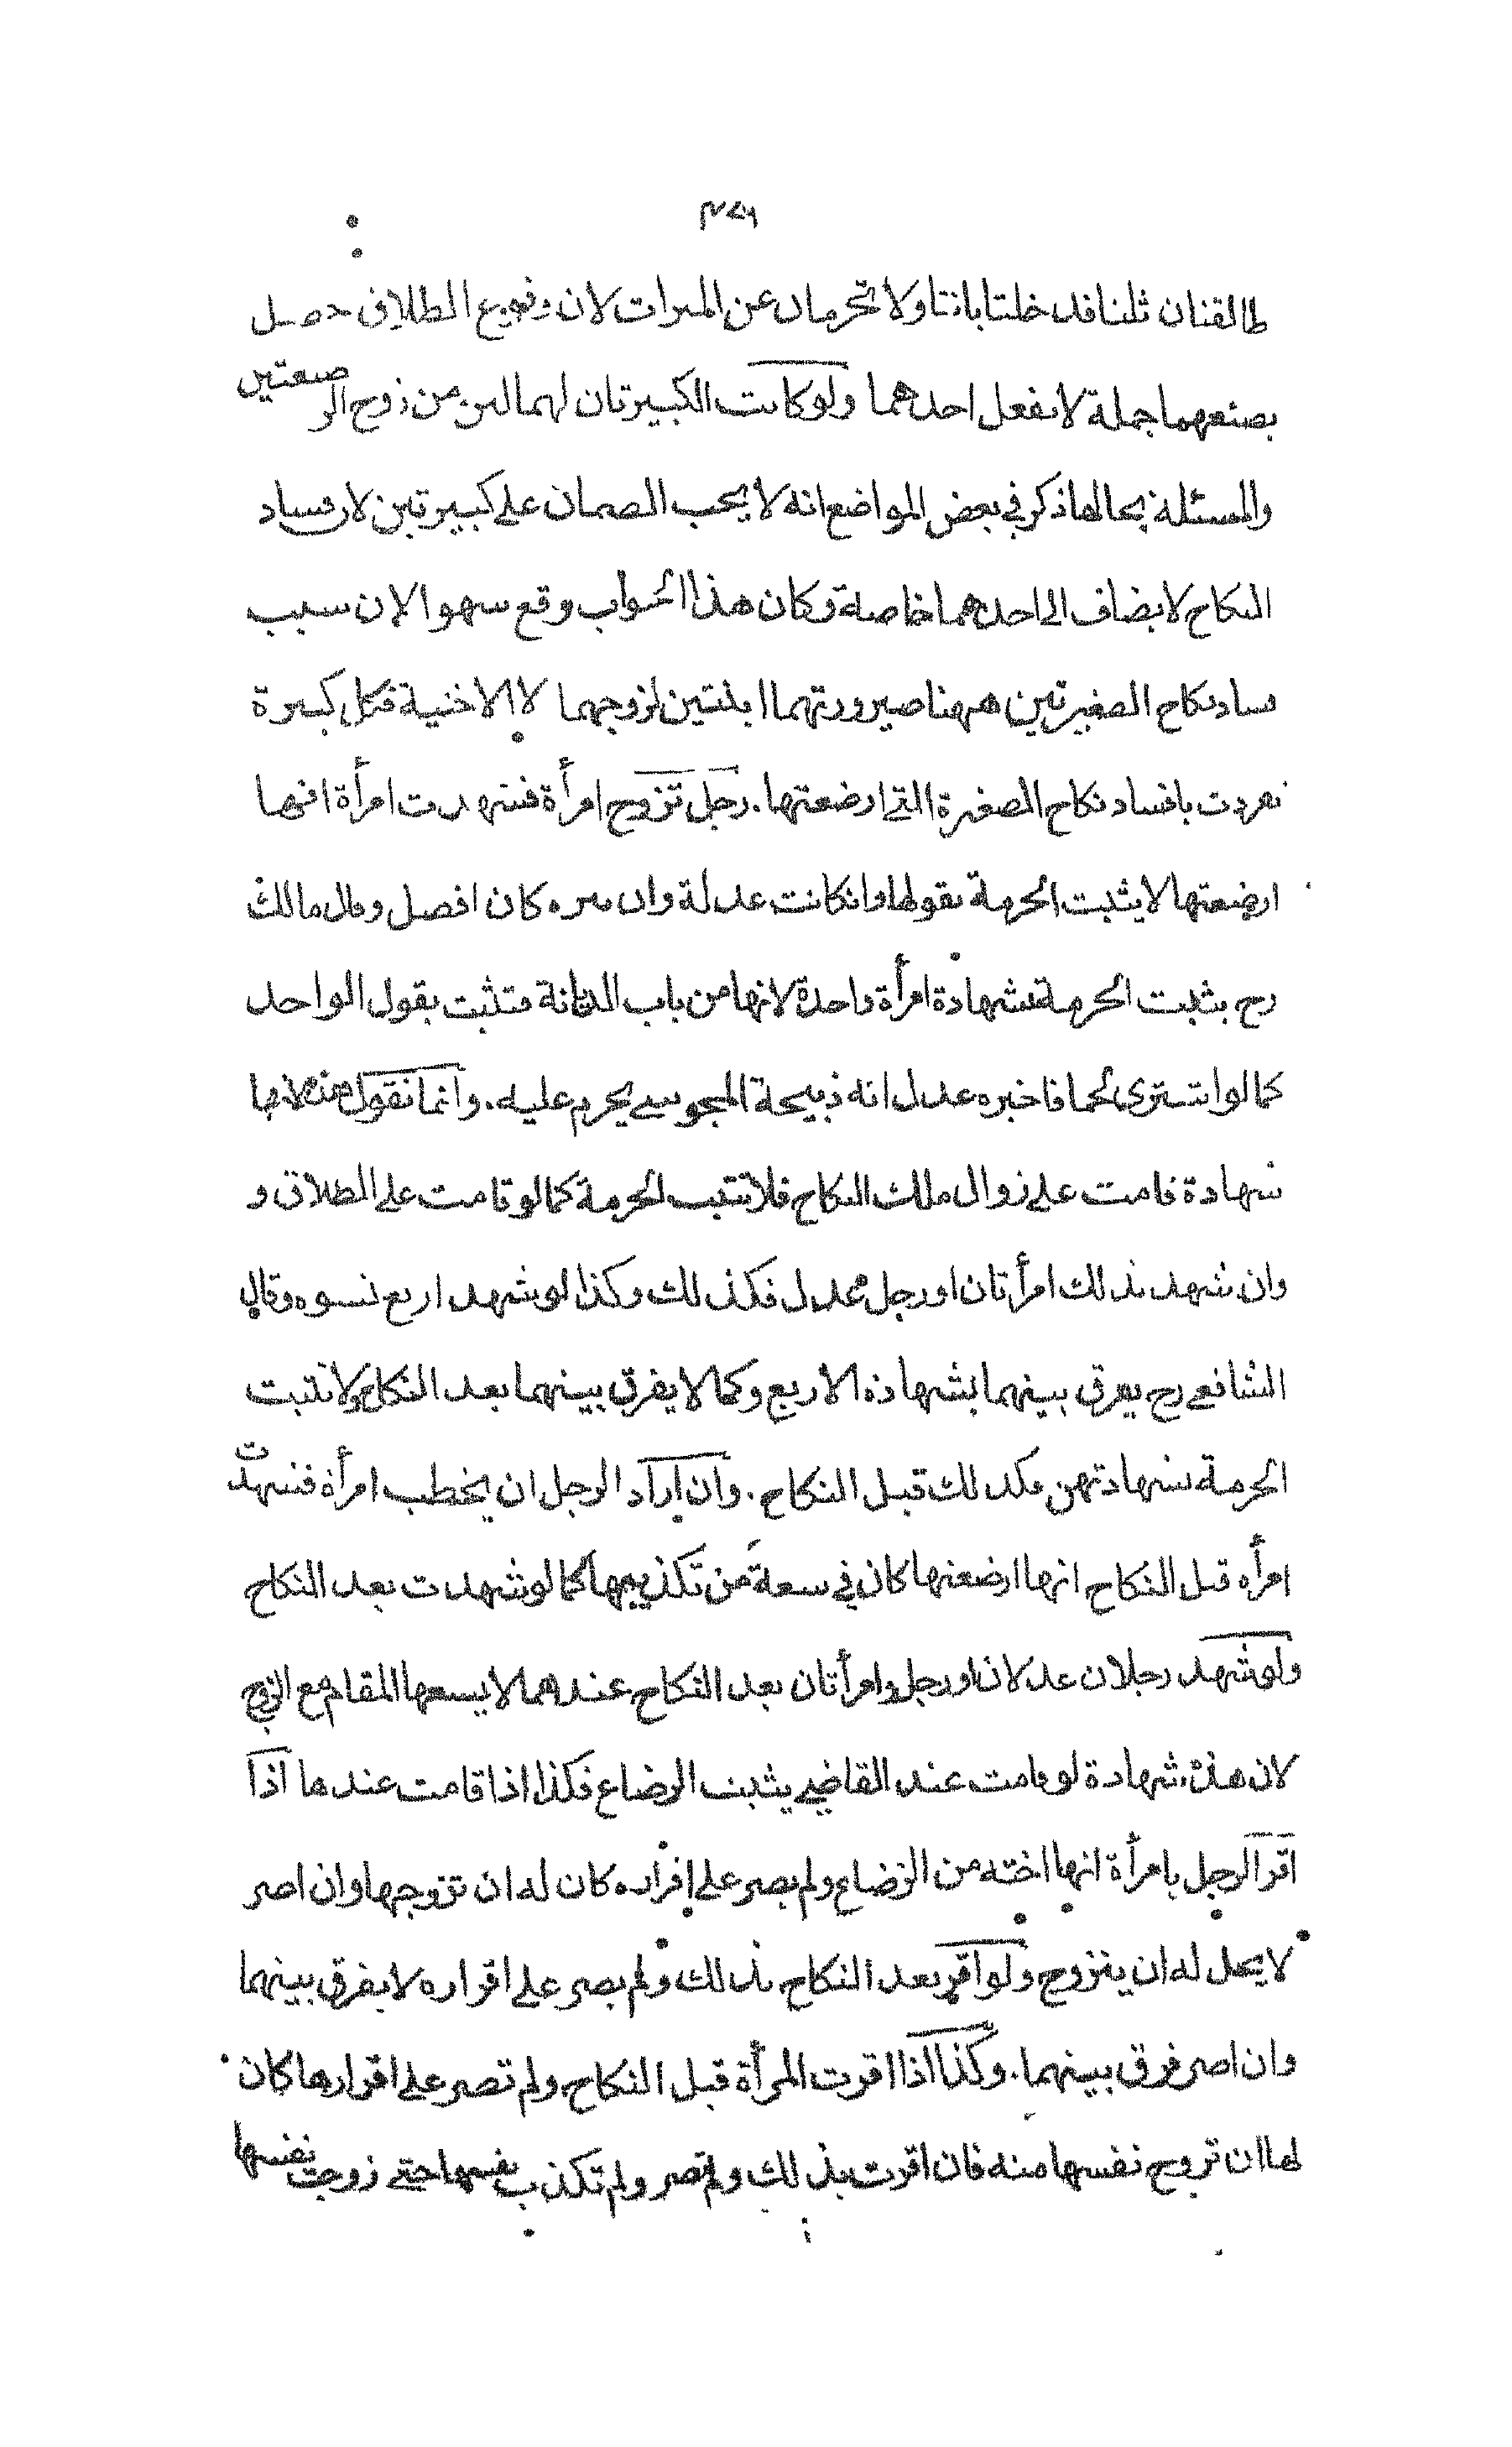 ٣٧٦
طالقتان ثلثا فدخلتا بانتا ولا تحرمان عن الميراث لان وقوع الطلاق حصل
بصنعهما جملة لا بفعل احدهما ولو كانت الكبيرتان لهما لبن من زوج الرضيعتين
والمسئلة بحالها ذكر في بعض المواضع انه لا يجب الضمان على كبيرتين لان فساد
النكاح لا يضاف الى احدهما خاصة وكان هذا الجواب وقع سهوا لان سبب
فساد نكاح الصغيرتين ههنا صيرورتهما ابنتين لزوجهما لا الاختية فكل كبيرة
تفردت بافساد نكاح الصغيرة التي ارضعتها. رجل تزوج امرأة فشهدت امرأة انها
ارضعتها لا يثبت الحرمة بقولها وان كانت عدلة وان تنزه كان افضل وقال مالك
رح يثبت الحرمة بشهادة امرأة واحدة لانها من باب الديانة فتثبت بقول الواحد
كما لو اشترى لحما فاخبره عدل انه ذبيحة المجوسي يحرم عليه. وانما نقول هذه لانها
شهادة قامت على زوال ملك النكاح فلا تثبت الحرمة كما لو قامت على الطلاق و
وان شهد بذلك امرأتان او رجل عدل فكذلك وكذا لو شهد اربع نسوه وقال
الشافعي رح يفرق بينهما بشهادة الاربع وكما لا يفرق بينهما بعد النكاح ولا تثبت
الحرمة بشهادتهن فكذلك قبل النكاح. وان اراد الرجل ان يخطب امرأة فشهدت
امرأه قبل النكاح انها ارضعتها كان في سعة من تكذيبها كما لو شهدت بعد النكاح
ولو شهد رجلان عدلان او رجل وامرأتان بعد النكاح عندهما لا يسعها المقام مع الزوج
لان هذه شهادة لو قامت عند القاضي يثبت الرضاع فكذا اذا قامت عندها اذا
اقر الرجل بامرأة انها اخته من الرضاع ولم يصر على اقراره كان له ان تزوجها وان اصر
لا يحل له ان يتزوج ولو اقر بعد النكاح بذلك ولم يصر على اقراره لا يفرق بينهما
وان اصر فرق بينهما. وكذا اذا اقرت المرأة قبل النكاح ولم تصر على اقرارها كان
لها ان تزوج نفسها منه فان اقرت بذلك ولم تصر ولم تكذب نفسها حتى زوجت نفسها